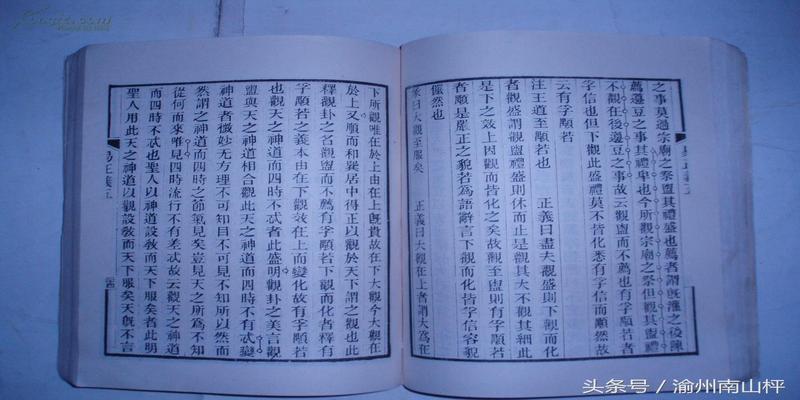 之事莫過宗廟之祭盥其禮盛也薦者謂旣灌之後陳
薦籩豆之事其禮卑也今所觀宗廟之祭但觀其盥禮
不觀在後籩豆之事故云觀盥而不薦也有孚顒若者
孚信也但下觀此盛禮莫不皆化悉有孚信而顒然故
云有孚顒若
注王道至顒若也　正義曰盡夫觀盛則下觀而化
者觀盛謂觀盥禮盛則休而止是觀其大不觀其細此
是下之效上因觀而皆化之矣故觀至盥則有孚顒若
者顒是嚴正之貌若爲語辭言下觀而化皆孚信容貌
儼然也
彖曰大觀至服矣　正義曰大觀在上者謂大爲在
下所觀唯在於上由在上旣貴故在下大觀今大觀在
於上又順而和巽居中得正以觀於天下謂之觀也此
釋觀卦之名觀盥而不薦有孚顒若下觀而化者釋有
孚顒若之義本由在下觀效在上而變化故有孚顒若
也觀天之神道而四時不忒者此盛明觀卦之美言觀
盥與天之神道相合觀此天之神道而四時不有忒變
神道者微妙无方理不可知目不可見不知所以然而
然謂之神道而四時之節氣見矣豈見天之所爲不知
從何而來唯見四時流行不有差忒故云觀天之神道
而四時不忒也聖人以神道設敎而天下服矣者此明
聖人用此天之神道以觀設敎而天下服矣天旣不言
易正義五
头条号／渝州南山枰